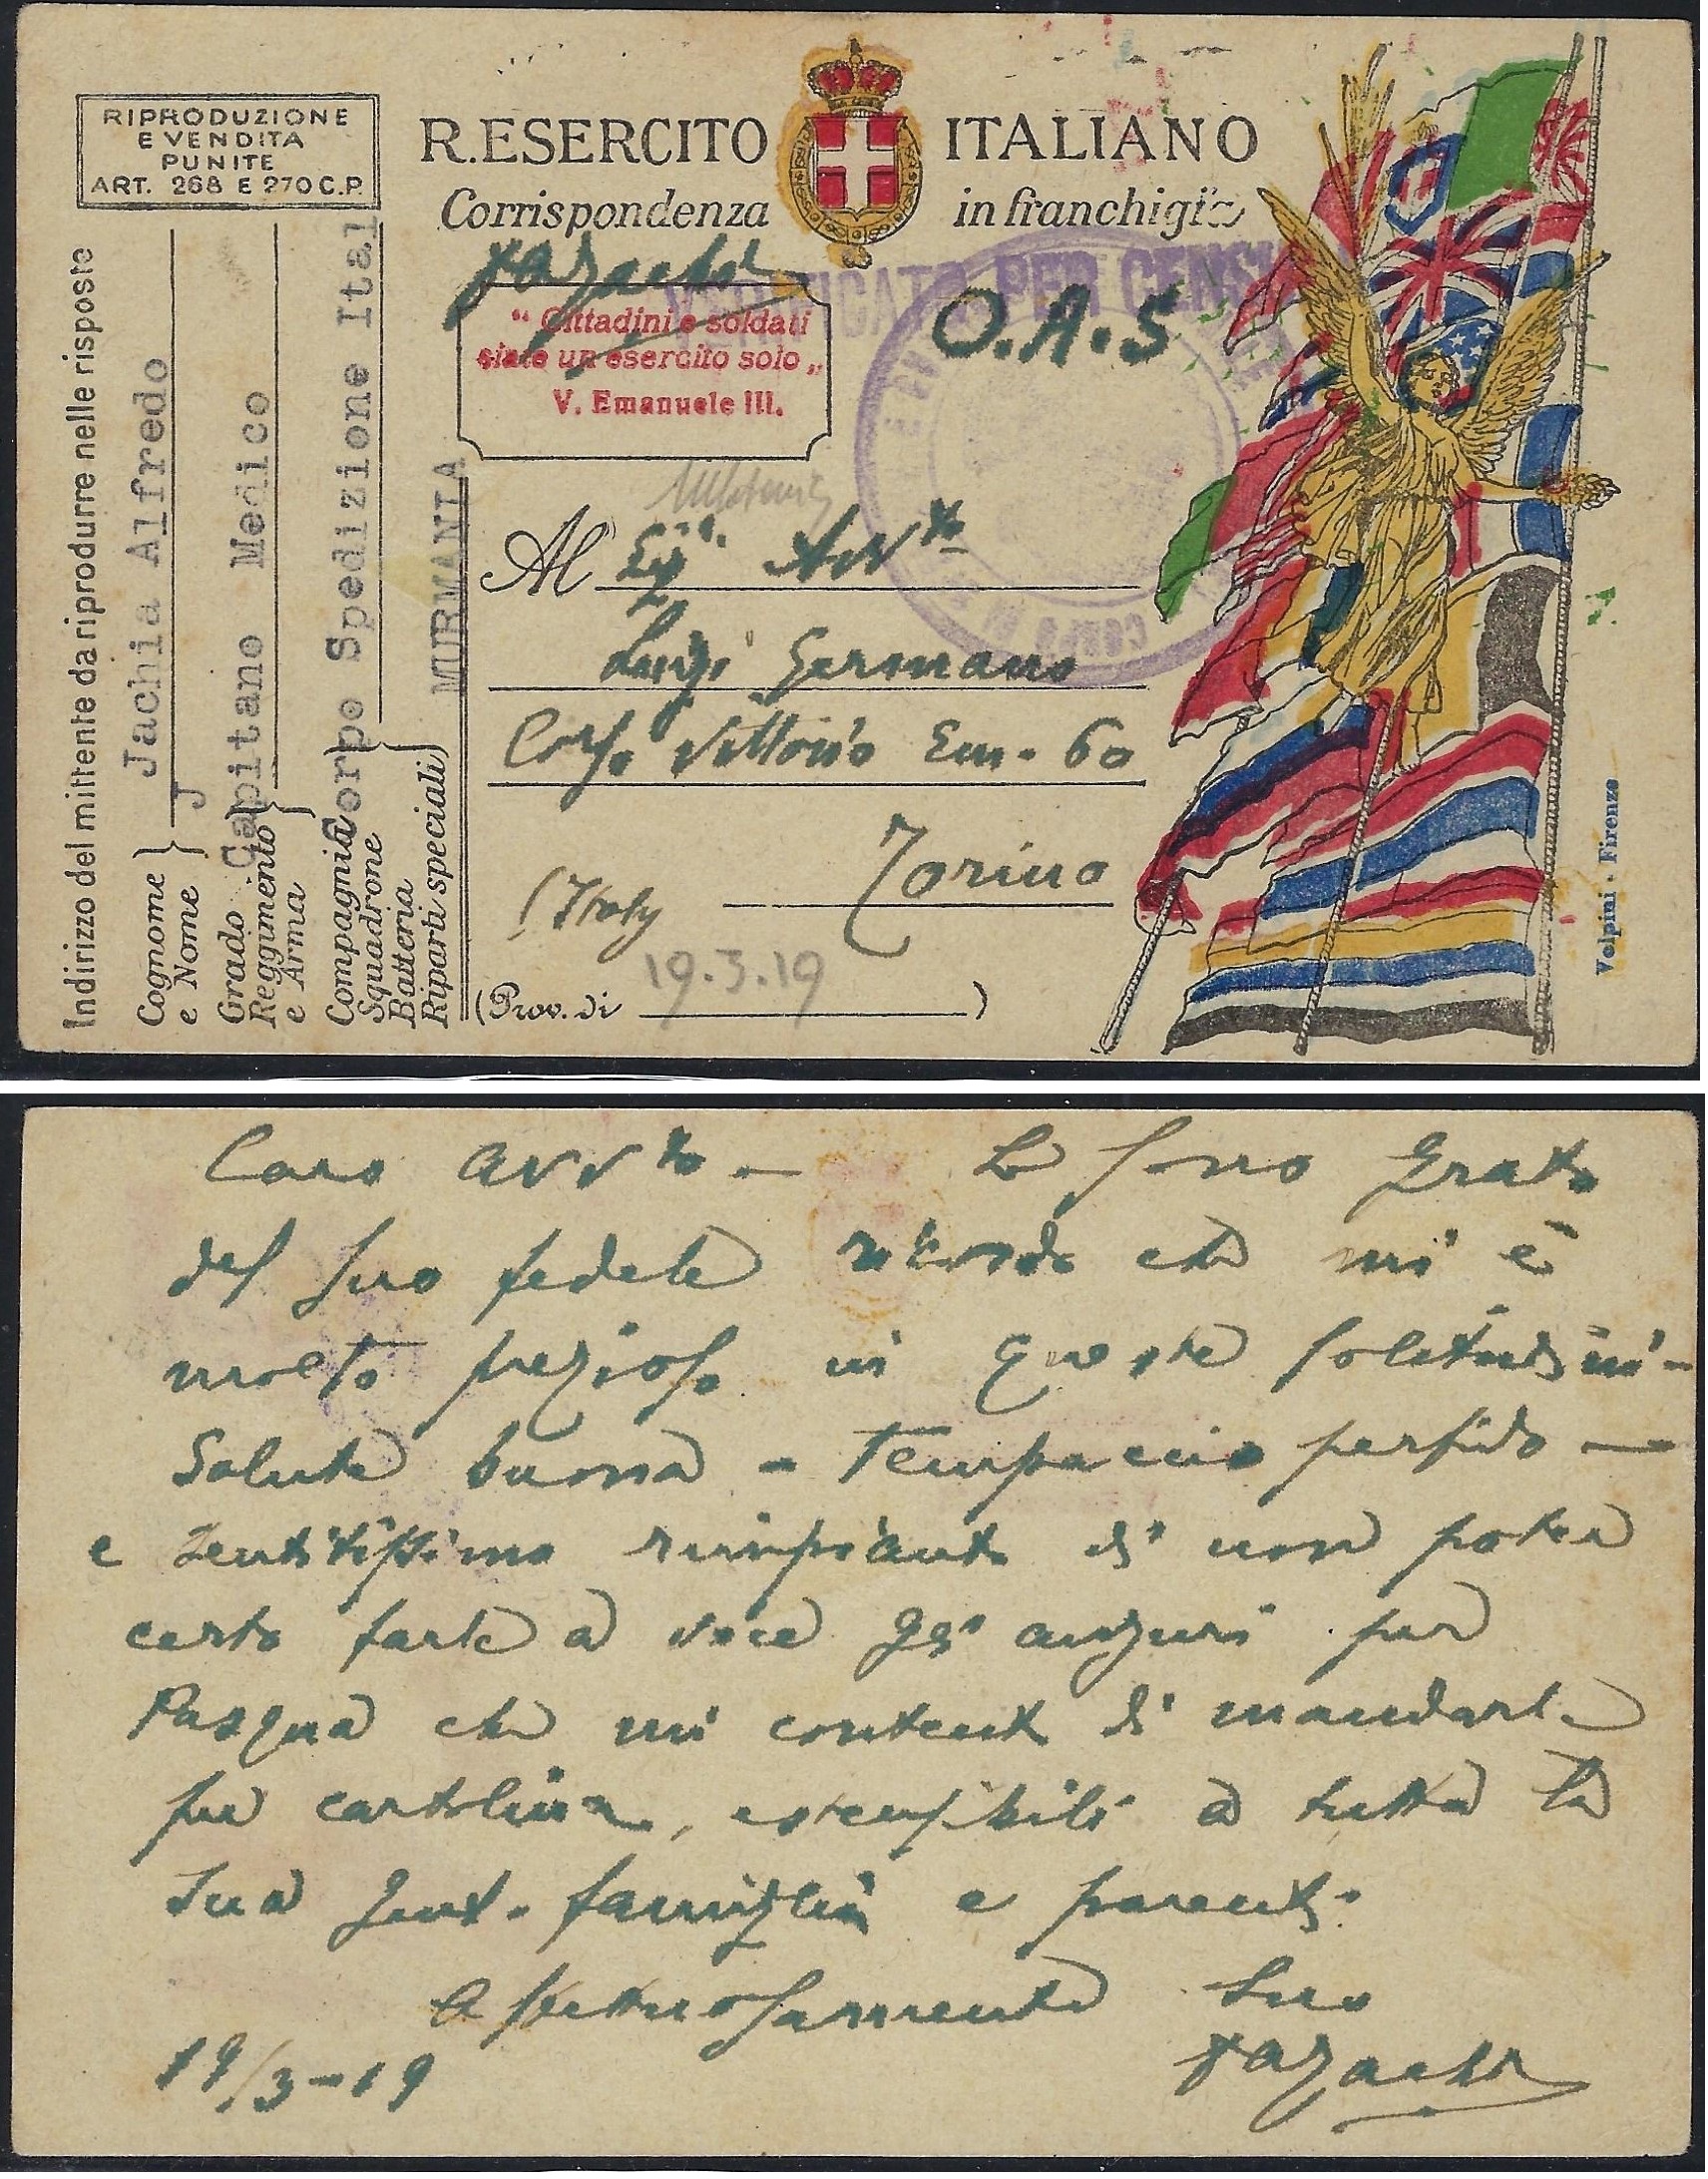 RIPRODUZIONE
E VENDITA
PUNITE
ART. 268 E 270 C.P.
R. ESERCITO ITALIANO
Corrispondenza in franchigia
VERIFICATO PER CENSURA
O.A.S
" Cittadini e soldati
siate un esercito solo „
V. Emanuele III.
Indirizzo del mittente da riprodurre nelle risposte
Cognome e Nome
Jachia Alfredo
J
Grado
Reggimento
e Arma
Capitano Medico
Compagnia
Squadrone
Batteria
Riparti speciali
Corpo Spedizione Ital
MURMANIA
Al Egr. Avv.to
Luigi Germano
Corso Vittorio Em. 60
Torino
(Italy
19.3.19
(Prov. di )
CORPO DI
Volpini - Firenze
Caro Avv.to - Le sono grato
del suo fedele ricordo che mi è
molto prezioso in queste solitudini -
Salute buona - Tempaccio perfido -
e sentitissimo rimpianto di non poter
certo farle a voce gli auguri per
Pasqua che mi content di mandarle
per cartolina, estensibili a tutta la
sua gent. famiglia e parenti.
Affettuosamente Suo
19/3-19